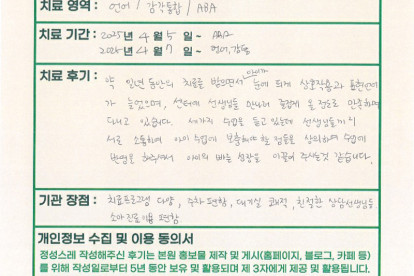 치료 영역 : 언어 / 감각통합 / ABA
치료 기간 : 2025년 4월 5일 ~ ABA
2025년 4월 7일 ~ 언어,감통
치료 후기 : 약 일년 동안의 치료를 받으면서 아이가 눈에 띄게 상호작용과 표현언어
가 늘었으며, 센터에 선생님들 만나러 즐겁게 올 정도로 만족하며
다니고 있습니다. 세가지 수업을 듣고 있는데 선생님들끼리
서로 소통하며 아이 수업에 부족해야 할 점들을 상의하여 수업에
반영을 해주셔서 아이의 빠른 성장을 이끌어 주시는것 같습니다.
기관 장점 : 치료프로그램 다양, 주차 편함, 대기실 쾌적, 친절한 상담선생님들,
소아진료이용 편함
개인정보 수집 및 이용 동의서
정성스레 작성해주신 후기는 본원 홍보물 제작 및 게시(홈페이지, 블로그, 카페 등)
를 위해 작성일로부터 5년 동안 보유 및 활용되며 제 3자에게 제공 및 활용됩니다.